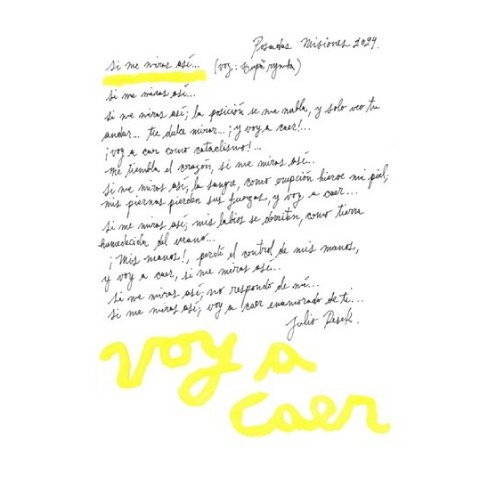 Posadas Misiones 2024.
si me miras así... (voz:
si me miras así...
si me miras así; la posición se me nubla, y solo veo tu
andar... tu dulce mirar...; y voy a caer!...
¡voy a caer como cataclismo!...
me tiembla el corazón, si me miras así..
si me miras así; la sangre, como erupción hierve mi piel;
mis piernas pierden sus fuerzas, y voy a caer...
si me miras así; mis labios se como tierra
humedecida del verano...
¡Mis manos!, perdí el control de mis manos,
y voy a caer, si me miras así...
si me miras así; no respondo de mí...
si me miras así; voy a caer enamorado de ti...
Julio Pasek.
voy a
caer